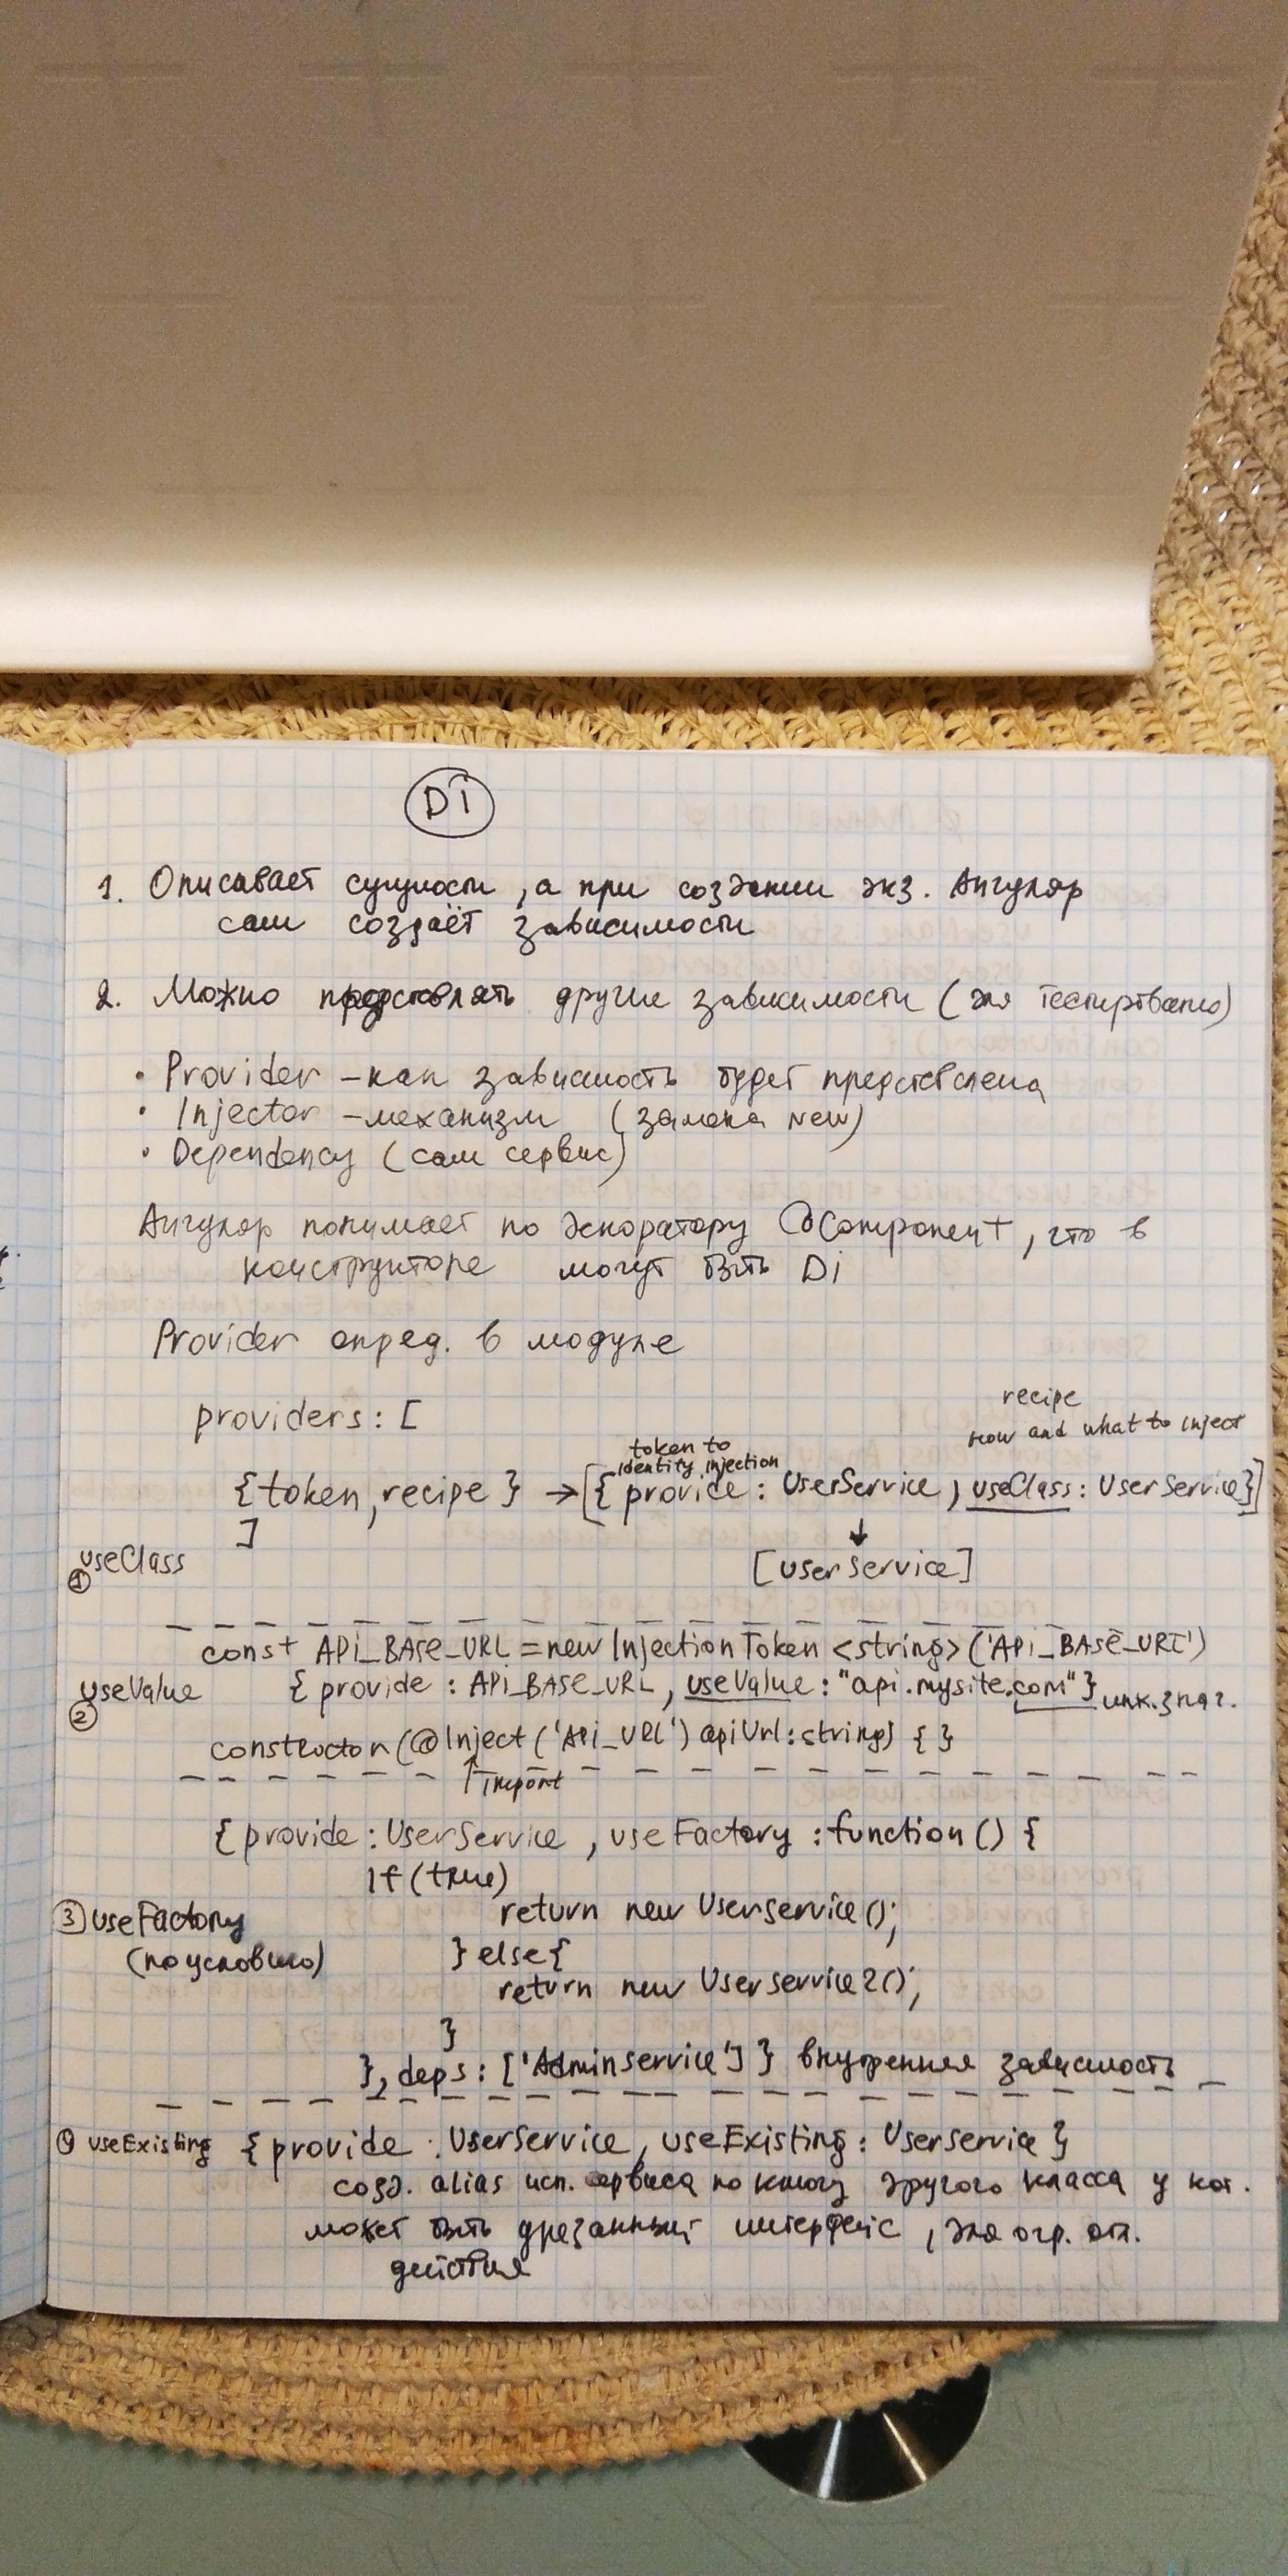 Di
1. Описывает сущности, а при создании экз. Ангуляр
сам создаёт зависимости
2. Можно представлять другие зависимости (для тестирования)
• Provider – как зависимость будет представлена
• Injector – механизм (замена new)
• Dependency (сам сервис)
Ангуляр понимает по декоратору @Component, что в
конструкторе могут быть Di
Provider опред. в модуле
providers: [
recipe
how and what to inject
token to
identity injection
{token, recipe} → [{provide: UserService, useClass: UserService}]
]
↓
[userService]
useClass
①
const APi_BASE_URL = new InjectionToken <string> ('APi_BASE_URL')
useValue
②
{provide: APi_BASE_URL, useValue: "api.mysite.com"}
constructor (@Inject ('APi_URL') apiUrl: string) { }
↑ import
{provide: UserService, useFactory: function () {
if (true)
return new Userservice();
③ useFactory
(по условию)
} else {
return new Userservice2();
}
}, deps: ['Adminservice'] } внутренняя зависимость
④ useExisting {provide: UserService, useExisting: Userservice}
созд. alias исп. сервиса по ключу другого класса у кот.
может быть урезанный интерфейс, для огр.
действия